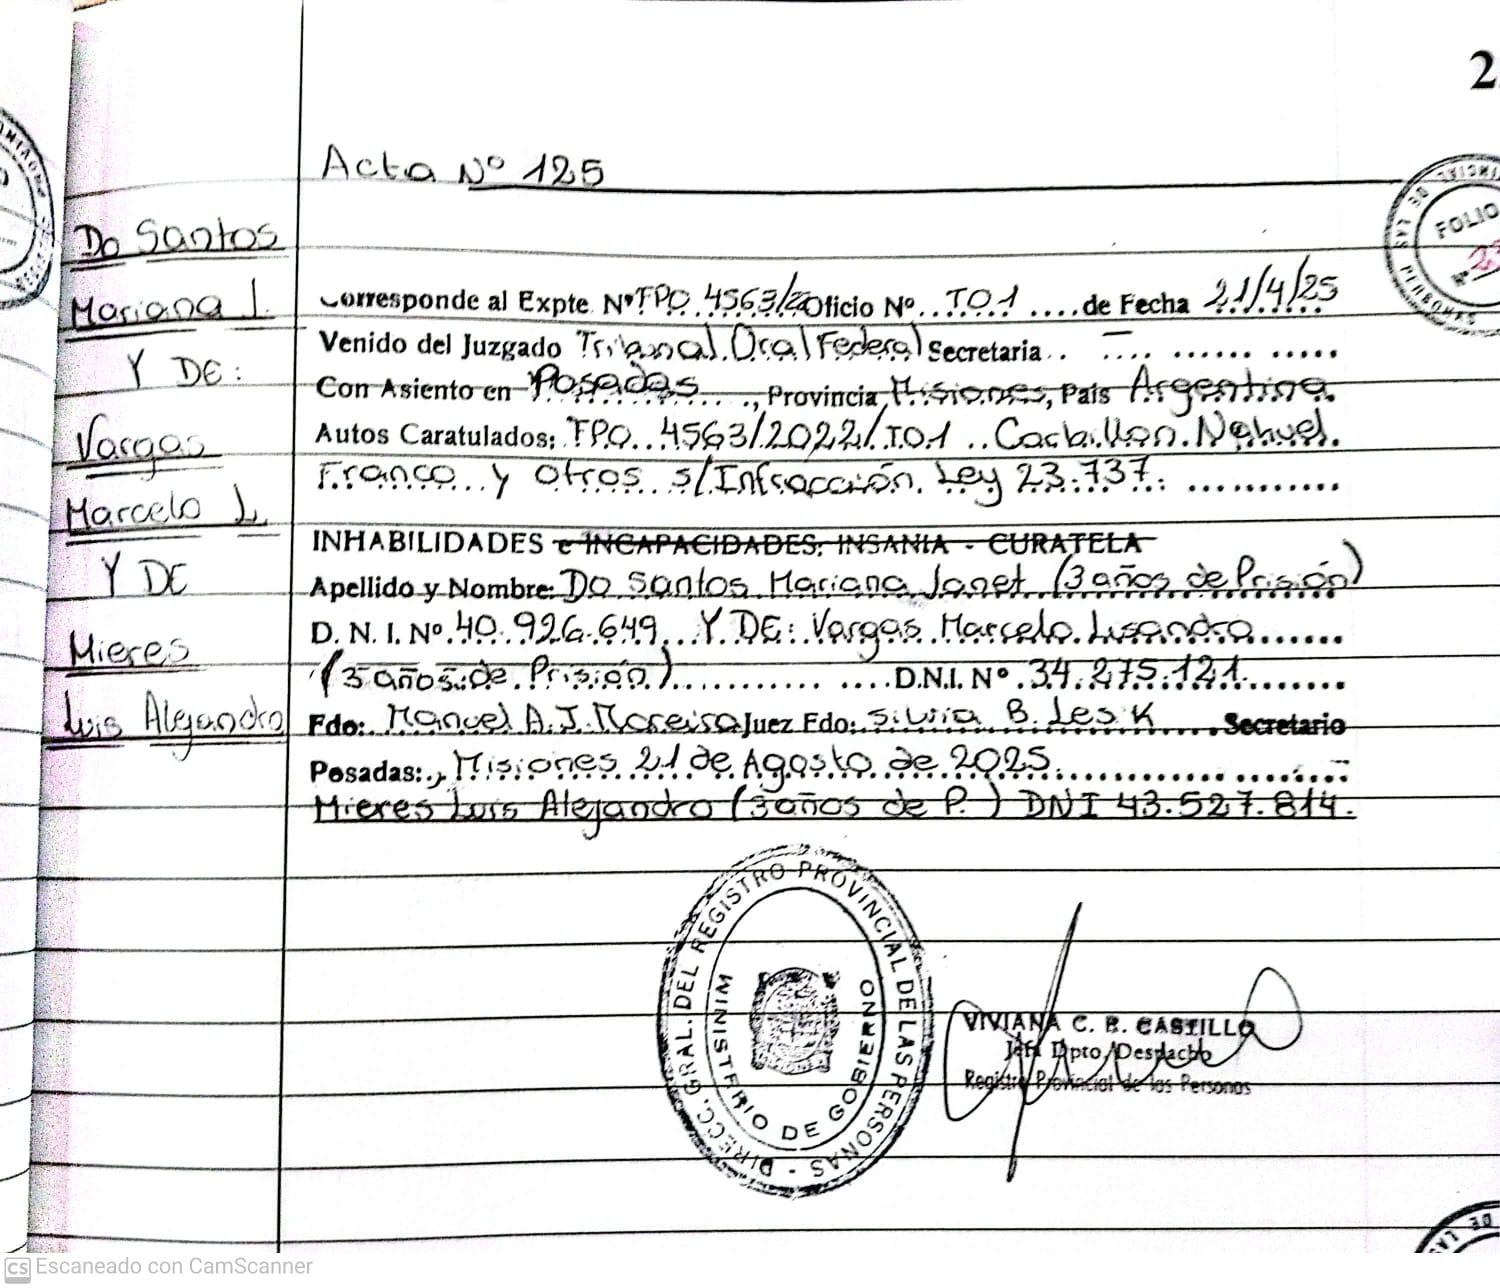 2
Acta Nº 125
Do Santos
Mariana J.
Y DE:
Vargas
Marcelo L.
Y DE
Mieres
Luis Alejandro
Corresponde al Expte Nº FPO 4563/22 Oficio Nº.. TO1 ....de Fecha 21/4/25
Venido del Juzgado Tribunal Oral Federal Secretaria.. — .... ...... .....
Con Asiento en Posadas ....., Provincia Misiones, Pais Argentina.
Autos Caratulados: FPO.. 4563/2022/TO1 .. Carbillon Nahuel.
Franco... y otros.. s/Infracción. Ley 23.737. ...........
INHABILIDADES e INCAPACIDADES: INSANIA - CURATELA
Apellido y Nombre: Do Santos Mariana Janet (3 años de Prisión)
D. N. I. Nº. 40.926.649... Y DE: Vargas Marcelo Lisandro.......
(3 años de Prisión)............ .....D.N.I. Nº. 34.275.121.......
Fdo: Manuel A. J. Moreira Juez Fdo: Silvia B. Lesk ....Secretario
Posadas:., Misiones 21 de Agosto de 2025...............
Mieres Luis Alejandro (3 años de P.) DNI 43.527.814.
DIRECC. GRAL. DEL REGISTRO PROVINCIAL DE LAS PERSONAS -
MINISTERIO DE GOBIERNO
VIVIANA C. B. CASTILLO
Jefa Dpto. Despacho
Registro Provincial de las Personas
FOLIO
Nº 23
DE LAS PERSONAS
CS Escaneado con CamScanner